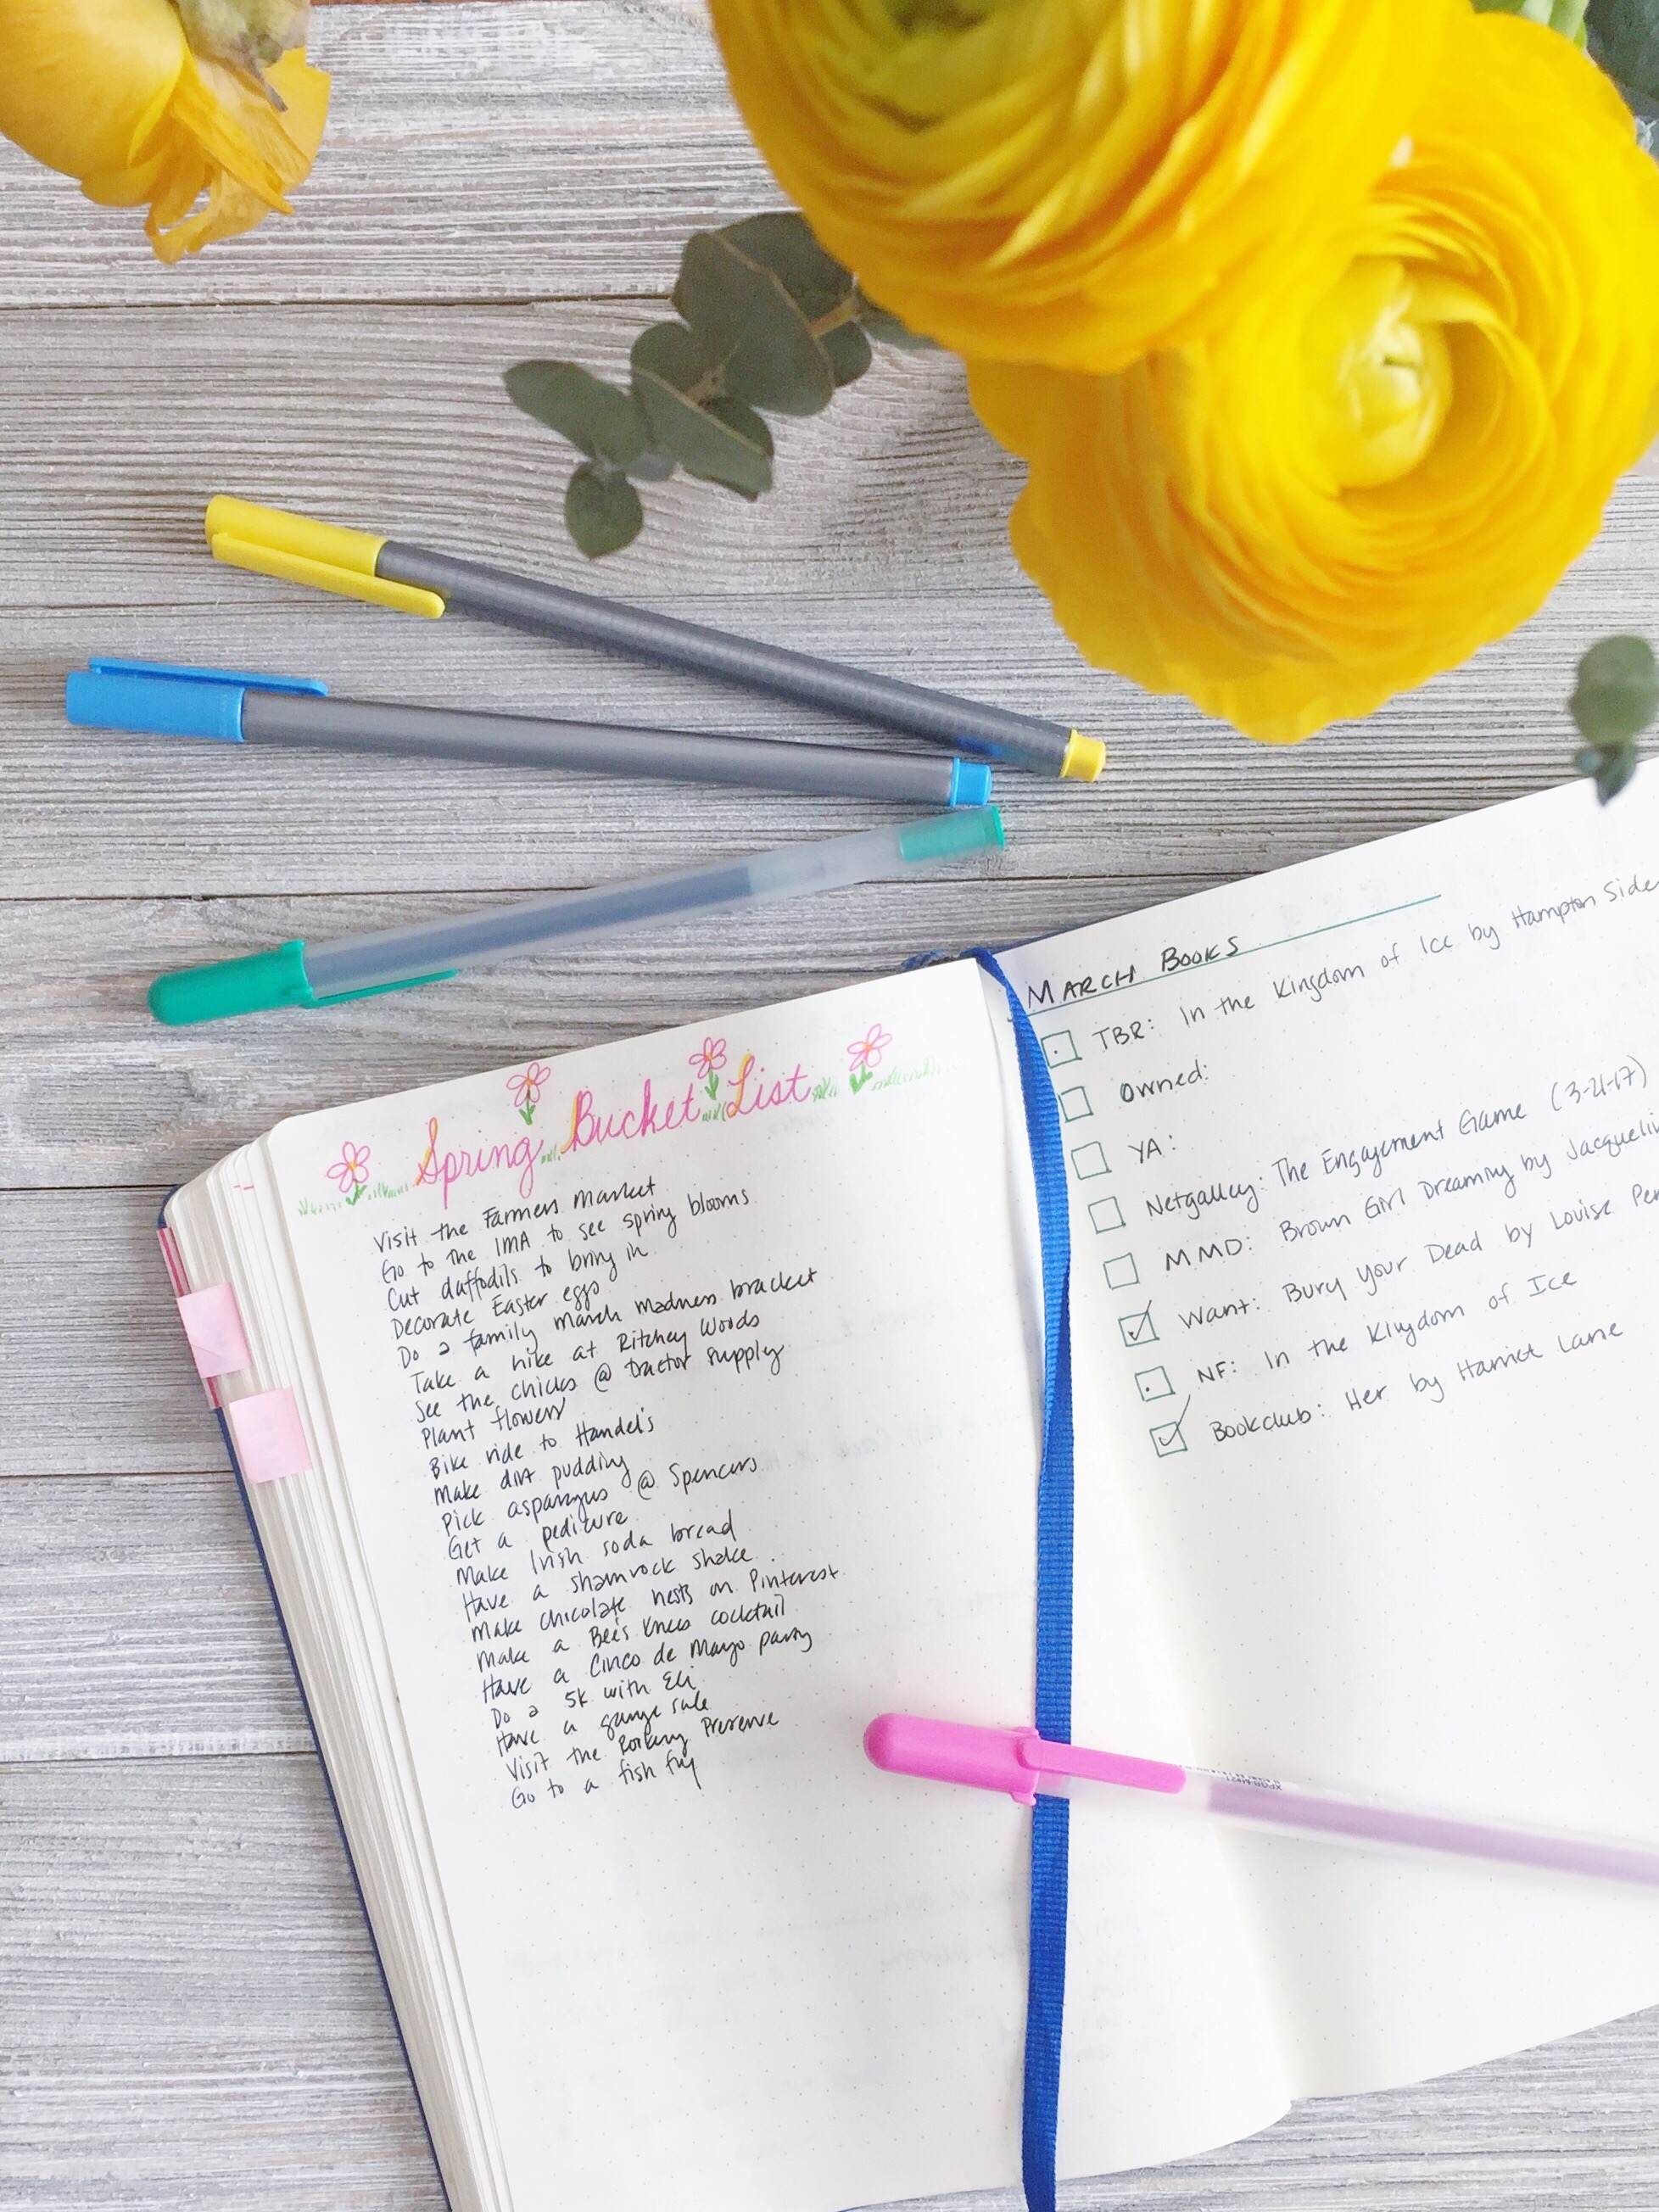 Spring Bucket List
Visit the Farmers Market
Go to the IMA to see spring blooms
Cut daffodils to bring in
Decorate Easter eggs
Do a family march madness bracket
Take a hike at Ritchey Woods
See the chicks @ tractor supply
Plant flowers
Bike ride to Handel's
Make dirt pudding
Pick asparagus @ Spencers
Get a pedicure
Make Irish soda bread
Have a shamrock shake
Make chicolate nests on Pinterest
Make a Bee's Knees cocktail
Have a Cinco de Mayo party
Do a 5k with Eli
Have a garage sale
Visit the Preserve
Go to a fish fry
MARCH BOOKS
TBR: In the Kingdom of Ice by Hampton Side
Owned:
YA:
Netgalley: The Engagement Game (3-21-17)
MMD: Brown Girl Dreaming by Jacquelin
Want: Bury Your Dead by Louise Pen
NF: In the Kingdom of Ice
Bookclub: Her by Harriet Lane